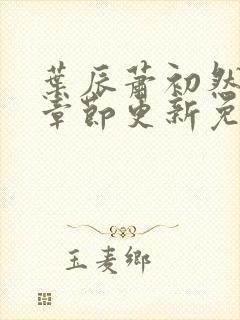 葉辰蕭初然
章節更新免
玉麦鄉